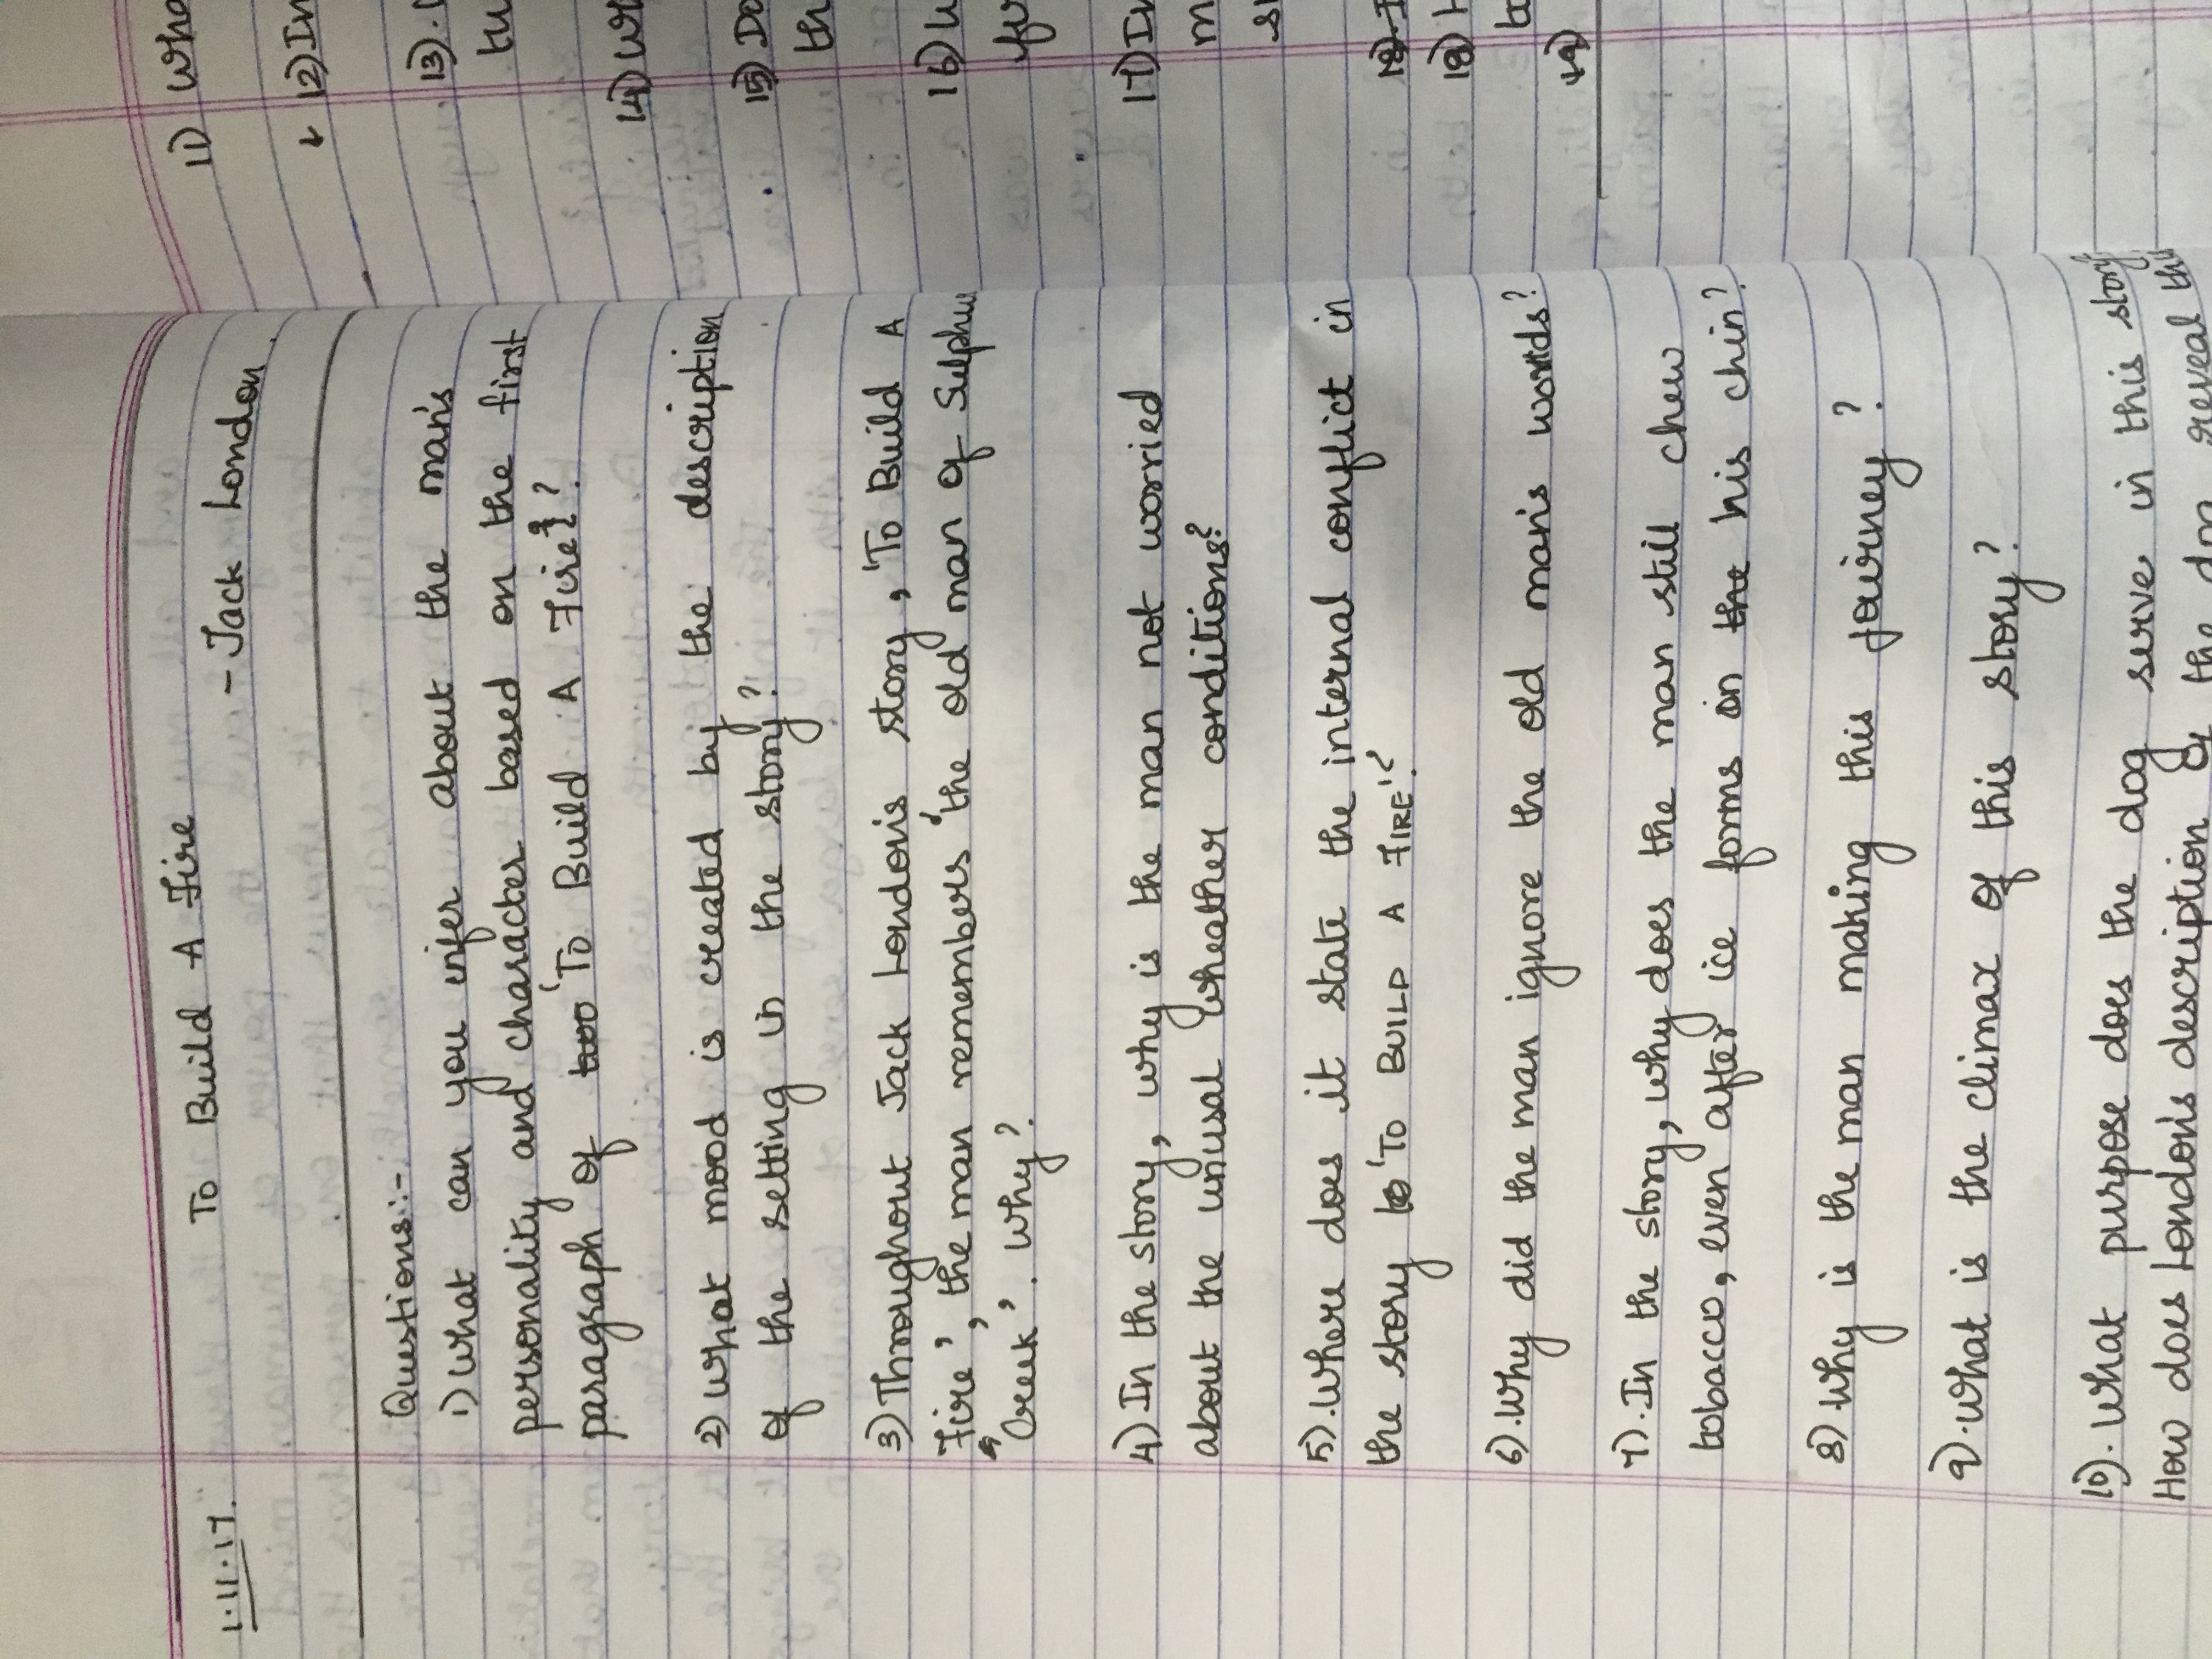 1.11.17.
To Build A Fire
- Jack London.
Questions:-
1) What can you infer about the man's
personality and character based on the first
paragraph of two 'To Build A Fire'?
2) What mood is created by the description
of the setting in the story?
3) Throughout Jack London's story, 'To Build A
Fire', the man remembers 'the old man of Sulphur
Creek'. Why?
4) In the story, why is the man not worried
about the unusal wheather conditions?
5). Where does it state the internal conflict in
the story 'TO BUILD A FIRE'?
6). Why did the man ignore the old man's words?
7). In the story, why does the man still chew
tobacco, even after ice forms on the his chin?
8) Why is the man making this journey?
9). What is the climax of this story?
10). What purpose does the dog serve in this story?
How does London's description of the dog reveal this
11)
12) In
13).
14)
15) Do
th
16)
17) In
m
18). I
18) H
to
19)